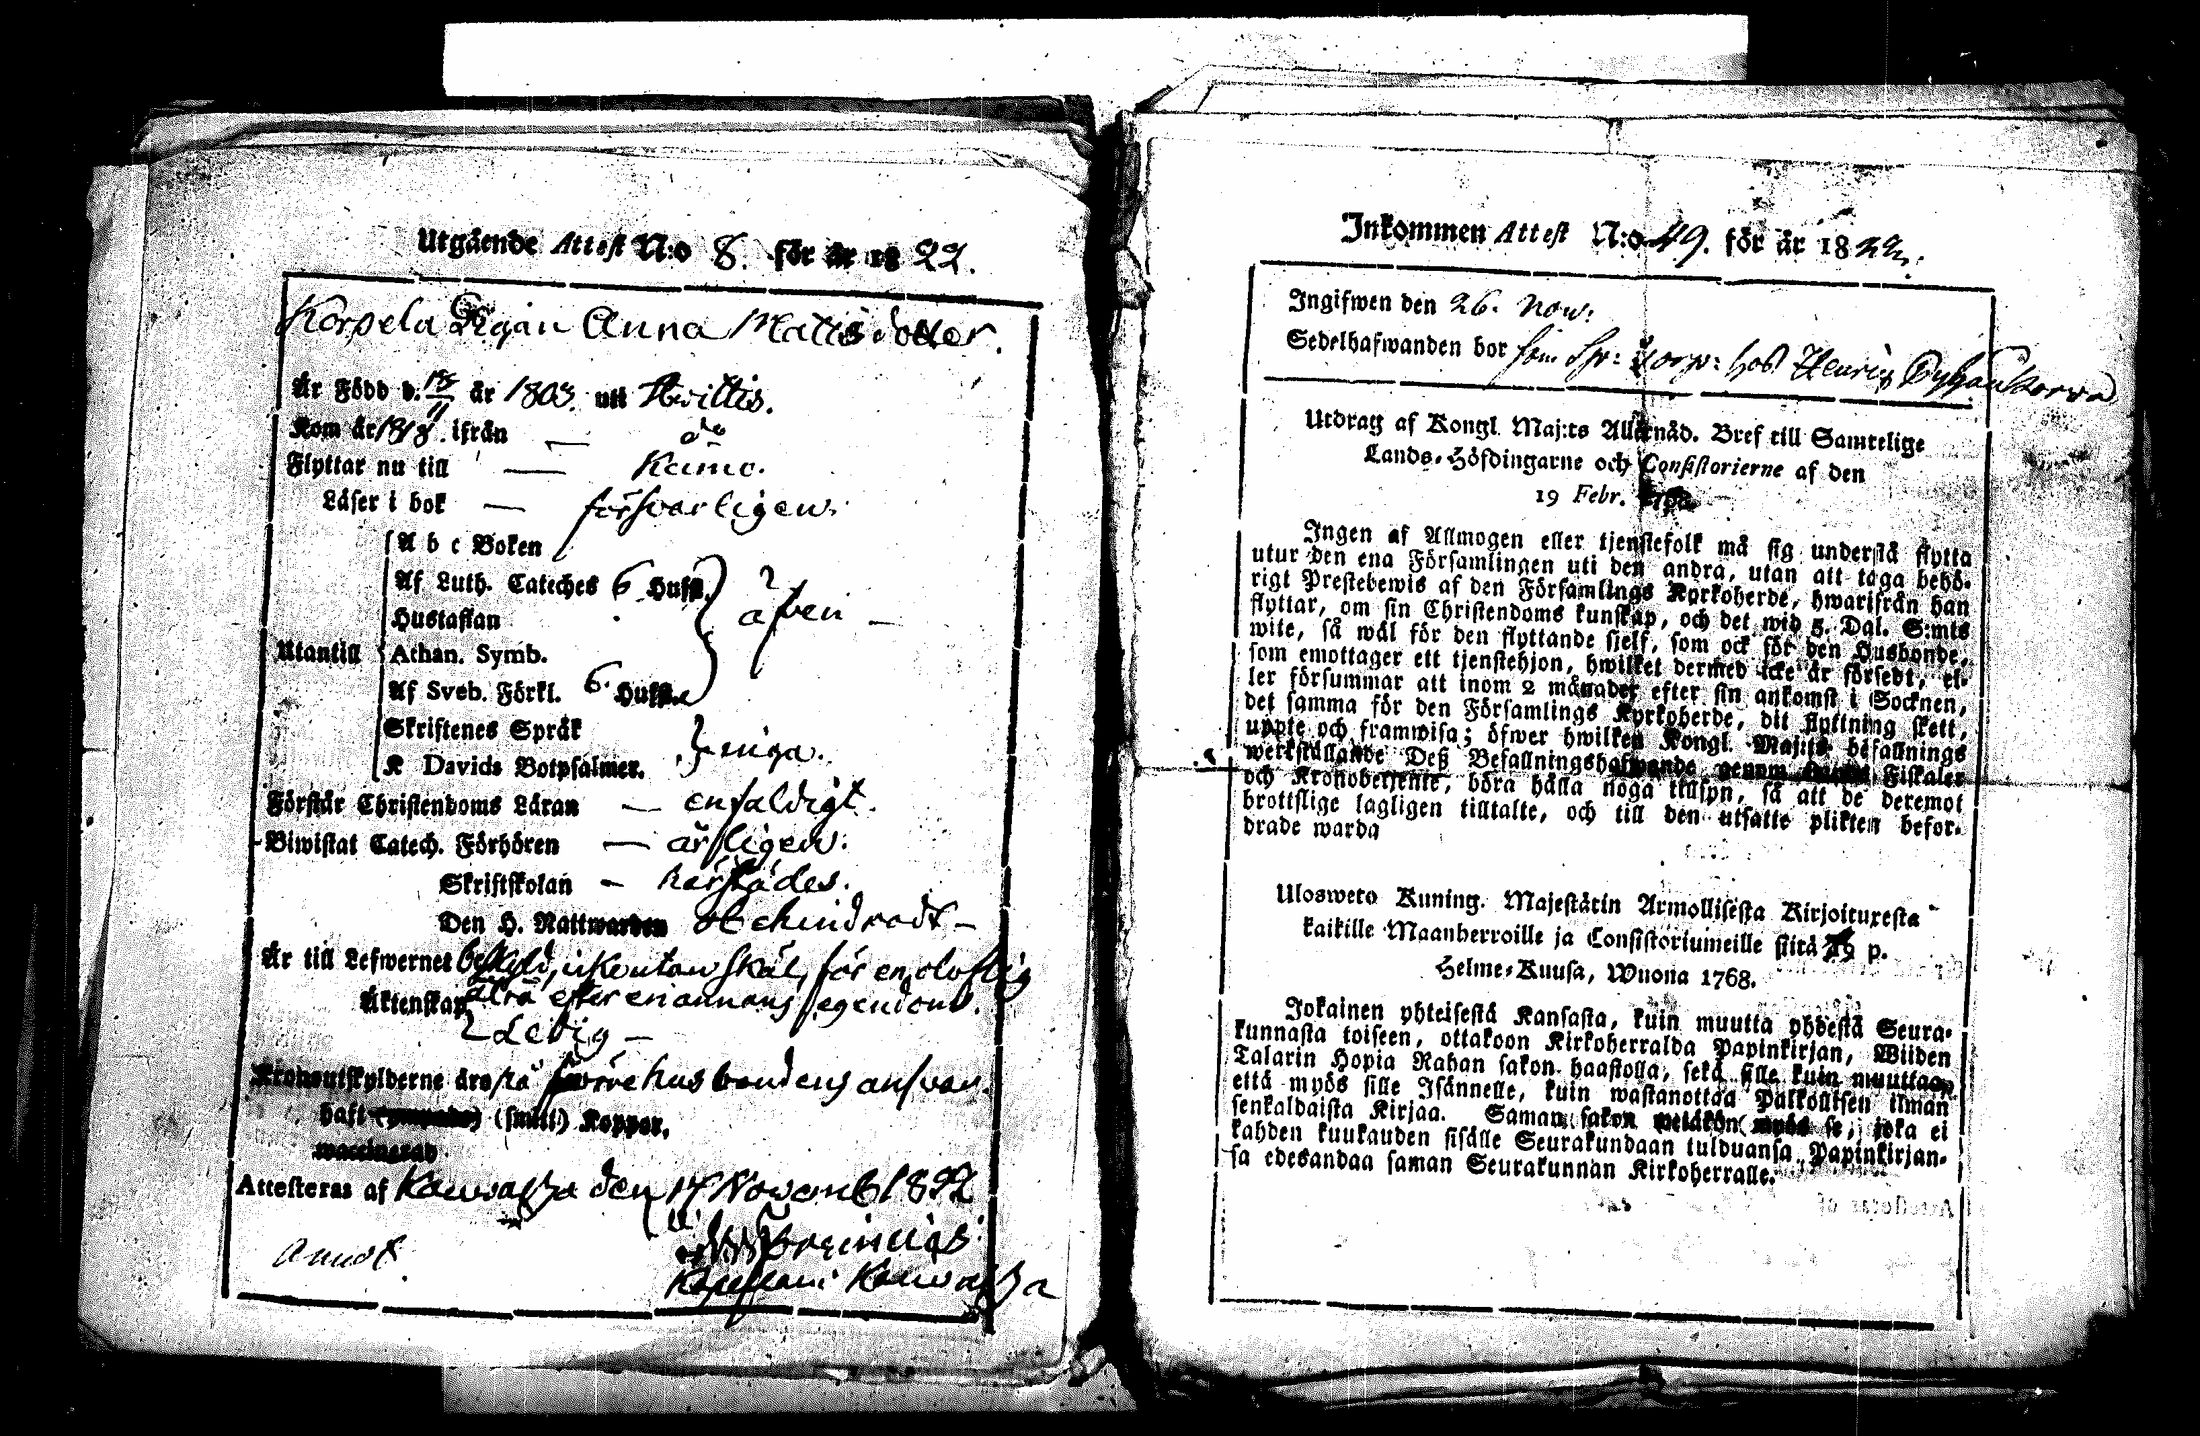 Utgående Attest N:o 8. för år 1822.
Korpela Pigan Anna Matts dotter.
Är Född d. 18/11 år 1803. uti Hwittis.
Kom år 1818. ifrån — do
Flyttar nu till — Kumo.
Läser i bok — försvarligen.
A b c Boken
Af Luth. Cateches 6 Hufst.
Hustaflan
även —
Utantill Athan. Symb.
Af Sveb. Förkl. 6. Hufst.
Skriftenes Språk
inga.
K Davids Botpsalmer.
Förstår Christendoms Läran — enfaldigt.
Biwistat Catech. Förhören — årligen.
Skriftskolan — härstädes.
Den H. Nattwarden obehindradt —
Är till Lefwernet beskyld, icke utan skäl, för en oloflig
åtrå efter en annans egendom.
Äktenskap Ledig —
Kronoutskylderne äro på förre husbondens answar.
haft (smitt) Koppor.
waccinerad
Attesteras af Kauvatsa den 17 Novemb 1822
Kapellani Kauvatsa
Inkommen Attest N:o 49. för år 1822.
Ingifwen den 26. Nov:
Sedelhafwanden bor som Henric
Utdrag af Kongl. Maj:ts Allernåd. Bref till Samtelige
Lands-Höfdingarne och Consistorierne af den
19 Febr.
Ingen af Allmogen eller tjenstefolk må sig understå flytta
utur den ena Församlingen uti den andra, utan att taga behö-
rigt Prestebewis af den Församlings Kyrkoherde, hwarifrån han
flyttar, om sin Christendoms kunskap, och det wid 5. Dal. S:mts
wite, så wäl för den flyttande sjelf, som ock för den Husbonde,
som emottager ett tjenstehjon, hwilket dermed icke är försedt, el-
ler försummar att inom 2 månader efter sin ankomst i Socknen,
det samma för den Församlings Kyrkoherde, dit flyttning skett,
uppte och framwisa; öfwer hwilken Kongl. Maj:ts befallnings
werkställande Deß Befallningshafwande genom Fiskaler
och Kronobetjente, böra hålla noga tillsyn, så att de deremot
brottslige lagligen tilltalte, och till den utsatte plikten befor-
drade warda
Ulosweto Kuning. Majestätin Armollisesta Kirjoituxesta
kaikille Maanherroille ja Consistoriumeille siitä 19 p.
Helme-Kuusa, Wuona 1768.
Jokainen yhteisestä Kansasta, kuin muutta yhdestä Seura-
kunnasta toiseen, ottakoon Kirkoherralda Papinkirjan, Wiiden
Talarin Hopia Rahan sakon haastolla, sekä sille kuin muuttaa,
että myös sille Isännelle, kuin wastanottaa Palkollisen ilman
senkaldaista Kirjaa. Saman sakon wetäkön myös se, joka ei
kahden kuukauden sisälle Seurakundaan tulduansa Papinkirjan-
sa edesandaa saman Seurakunnan Kirkoherralle.